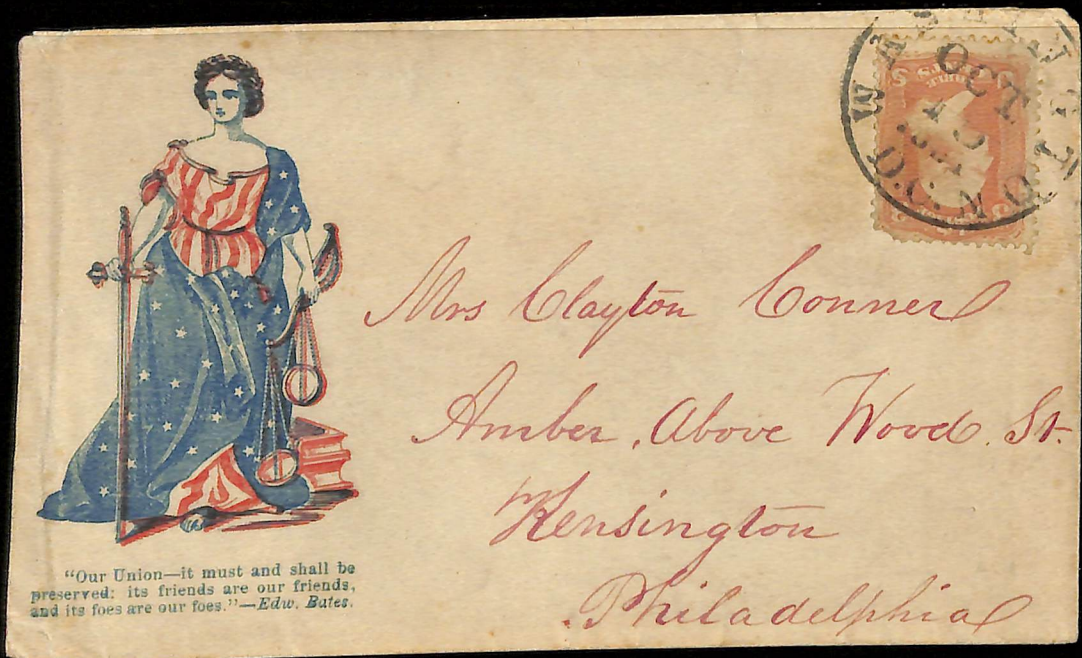 WASHINGTON D.C.
OCT
Mrs Clayton Conner
Amber, Above Wood St.
Kensington
Philadelphia
"Our Union—it must and shall be
preserved: its friends are our friends,
and its foes are our foes."—Edw. Bates.